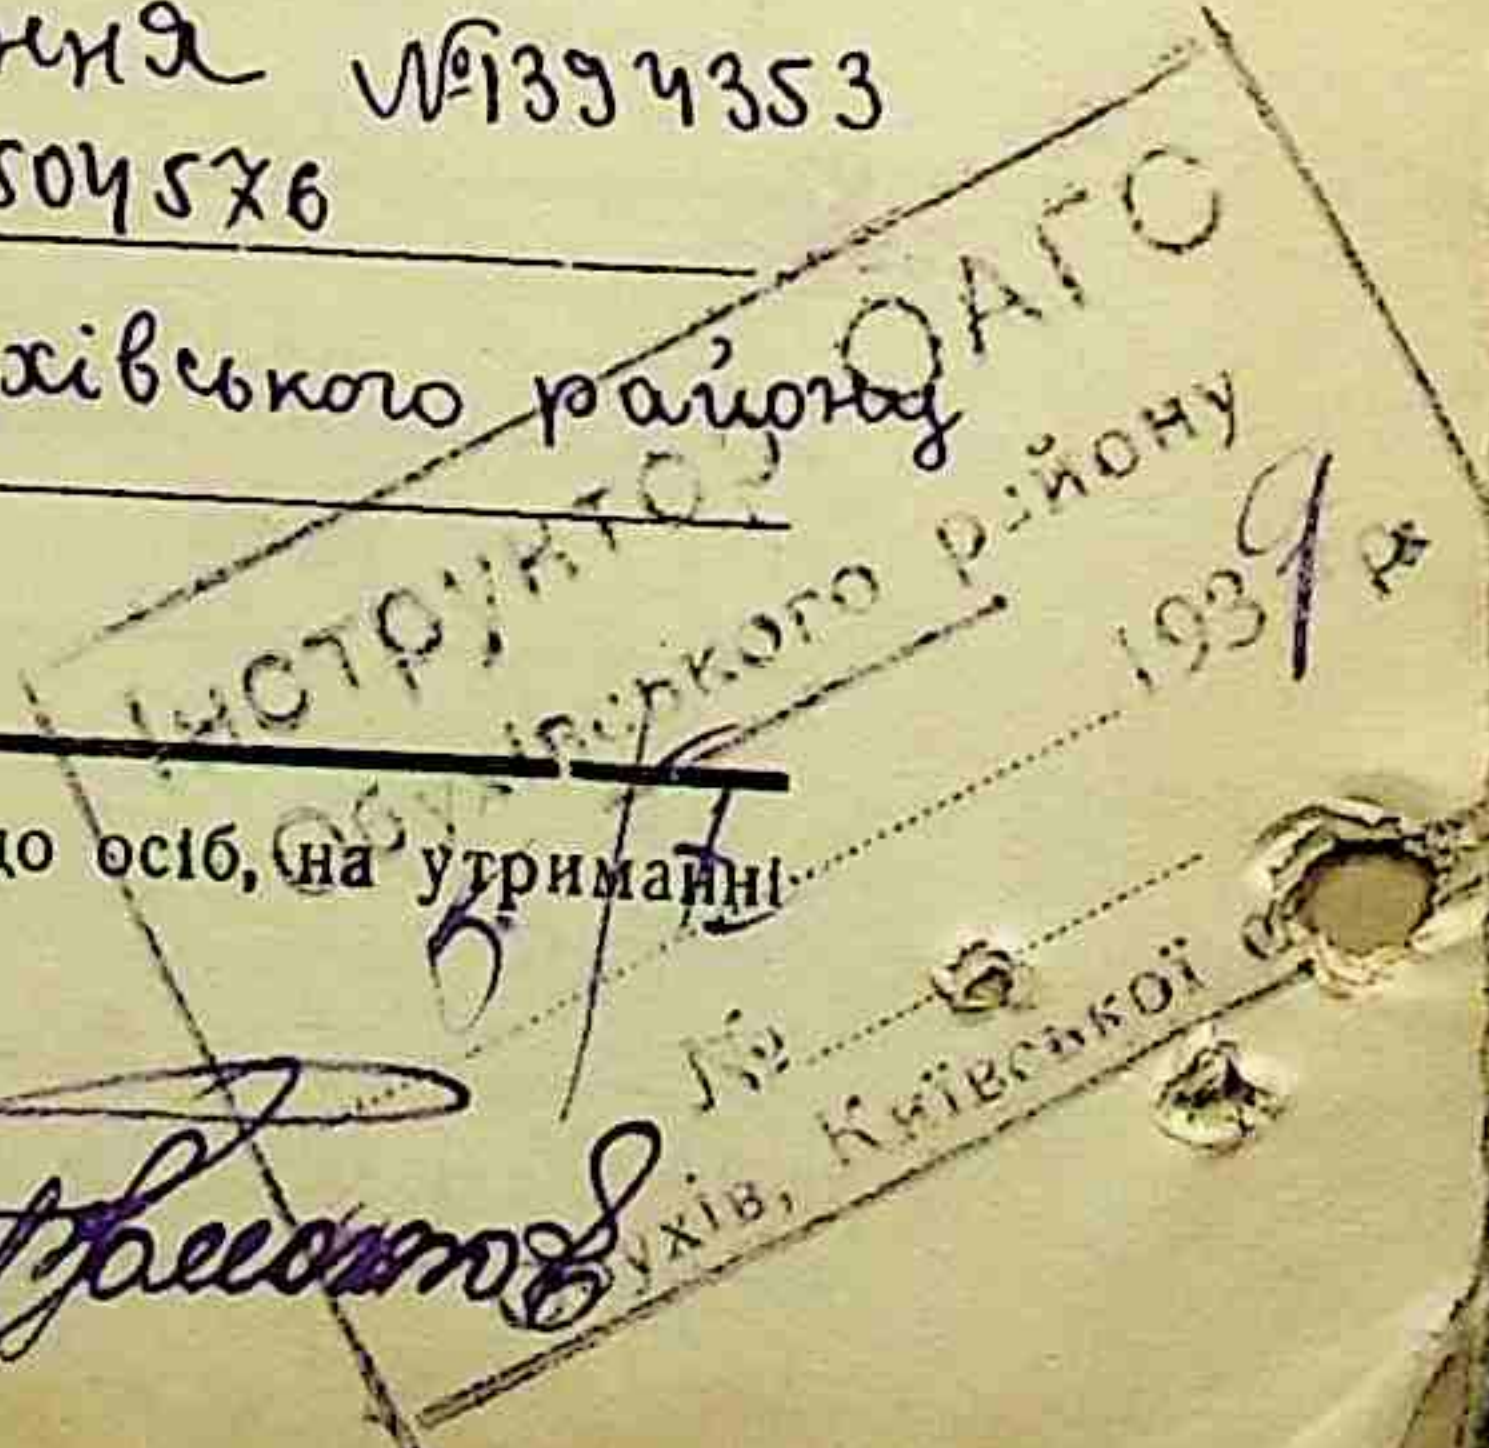 ння №1394353
504576
хівського району
до осіб, на утриманні
ІНСТРУКТОР ОАГС
Обухівського району
1939 р.
5/І
№
Обухів, Київської о